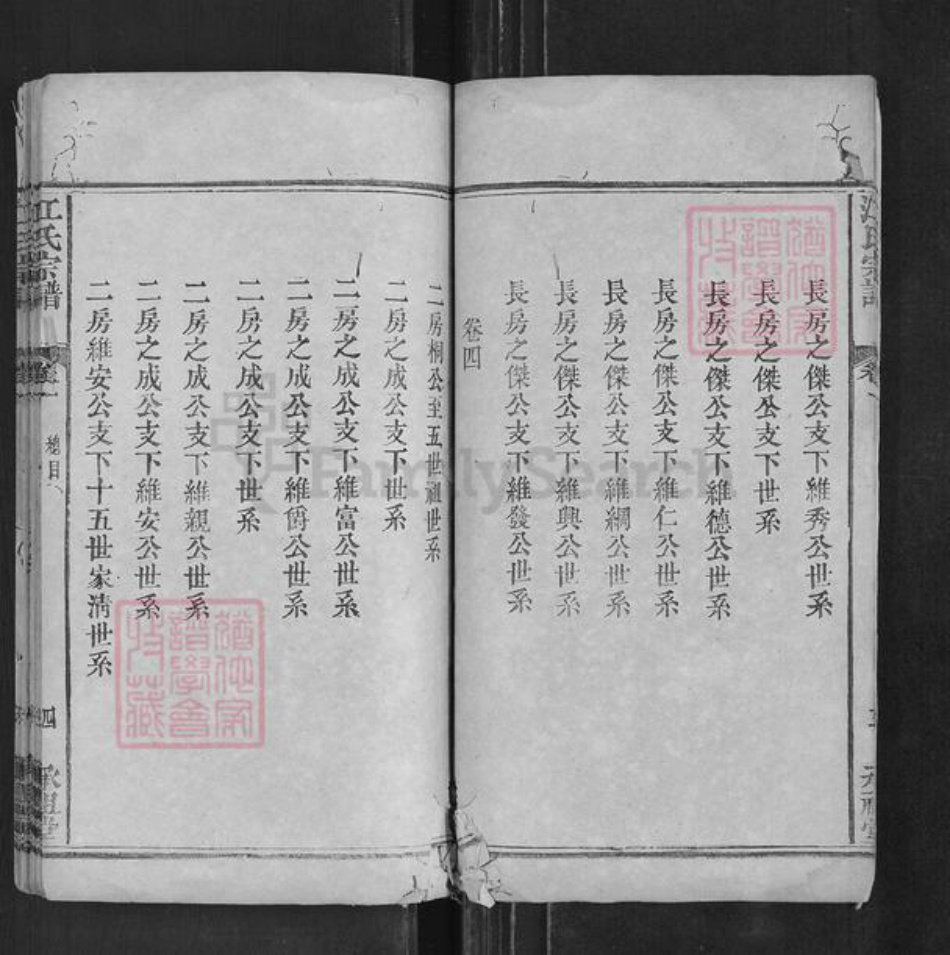 長房之傑公支下維秀公世系
長房之傑公支下世系
長房之傑公支下維德公世系
長房之傑公支下維仁公世系
長房之傑公支下維綱公世系
長房之傑公支下維興公世系
長房之傑公支下維發公世系
卷四
二房桐公至五世祖世系
二房之成公支下世系
二房之成公支下維富公世系
二房之成公支下維爵公世系
二房之成公支下世系
二房之成公支下維親公世系
二房之成公支下維安公世系
二房維安公支下十五世家淸世系
江氏宗譜
總目
四
猶他家譜學會特藏
猶他家譜學會特藏
FamilySearch